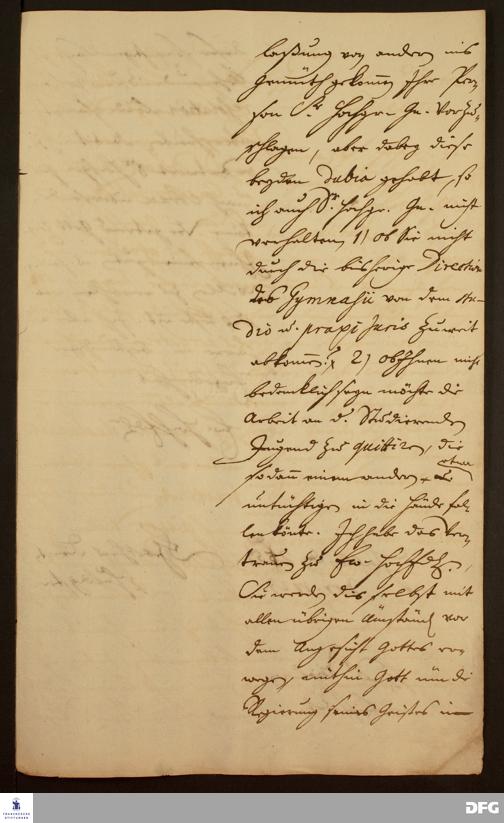 laßung von andern ins
Gemüth gekommen Ihre Per-
son Sr. Hochgr. Gn. vorzu-
schlagen, aber dabey diese
beyden Dubia gehabt, so
ich auch Sr. Hochgr. Gn. nicht
verhalten, 1) ob Sie nicht
durch die bisherige Direction
des Gymnasii von dem stu-
dio u. praxi Juris zu weit
abkommen? 2) ob Ihnen nicht
bedenklich seyn möchte die
Arbeit an d. Studierenden
Jugend zu quittiren, die
sodann einem andern etwa
untüchtigen in die Hände fal-
len könte. Ich habe das Ver-
trauen zu Ew.
Sie werden dis selbst mit
allen übrigen Umständ vor
dem Angesicht Gottes er-
wegen, mithin Gott um die
Regierung seines Geistes in-
FRANCKESCHE
STIFTUNGEN
DFG